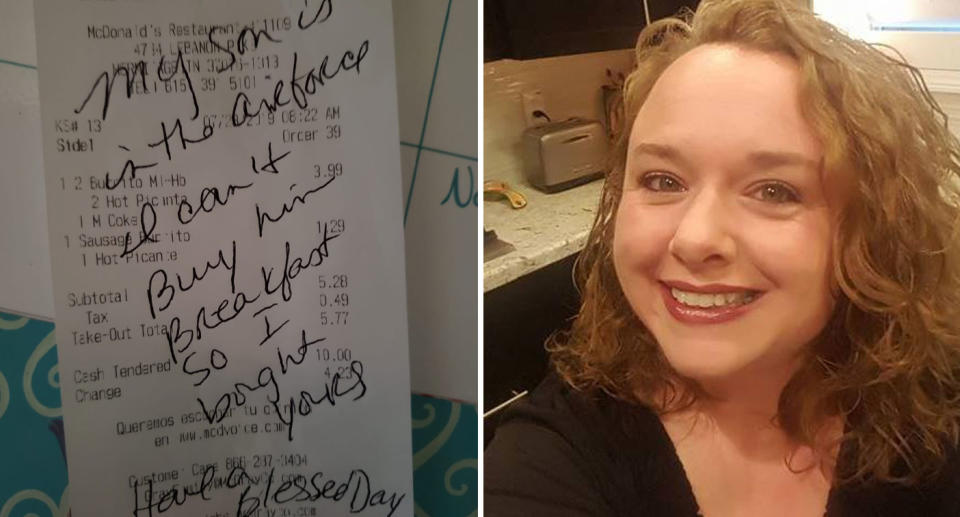 McDonald's Restaurant #1109
4734 LEBANON PIKE
HERMITAGE, TN 37076-1313
TEL# 615 39 5101
KS# 13
07/2 2019 08:22 AM
Side1
Order 39
1 2 Burrito Ml-Hb
3.99
2 Hot Picante
1 M Coke
1 Sausage Burrito
1.29
1 Hot Picante
Subtotal
5.28
Tax
0.49
Take-Out Total
5.77
Cash Tendered
10.00
Change
4.23
Queremos escuchar tu
en www.mcdvoice.com
Customer Care 866-287-3404
My son is
in the areforce
I can't
Buy him
Breakfast
so I
bought
yours
Have a
Blessed Day